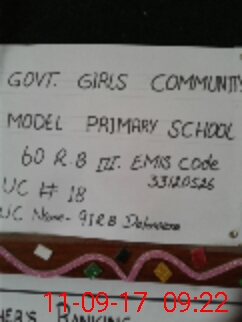 GOVT. GIRLS COMMUNITY
MODEL PRIMARY SCHOOL
60 R.B III. EMIS Code
33120526
UC # 18
UC Name- 91RB
11-09-17 09:22
RANKING